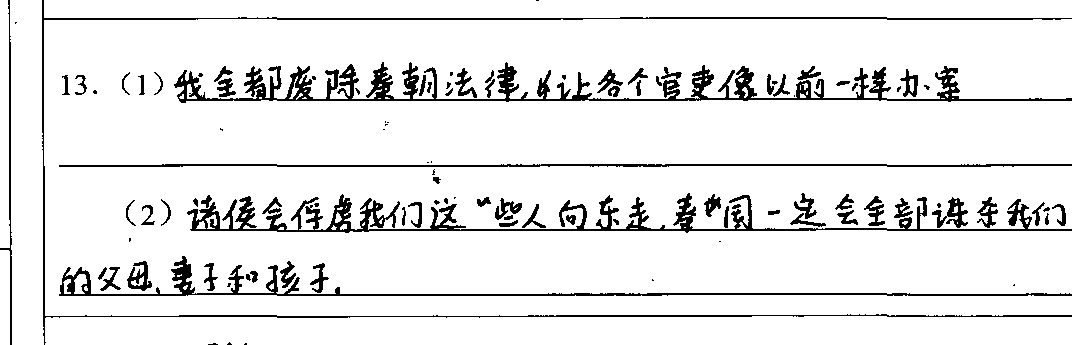 13.（1）我全都废除秦朝法律,让各个官吏像以前一样办案
（2）诸侯会俘虏我们这些人向东走,秦国一定会全部诛杀我们
的父母、妻子和孩子.